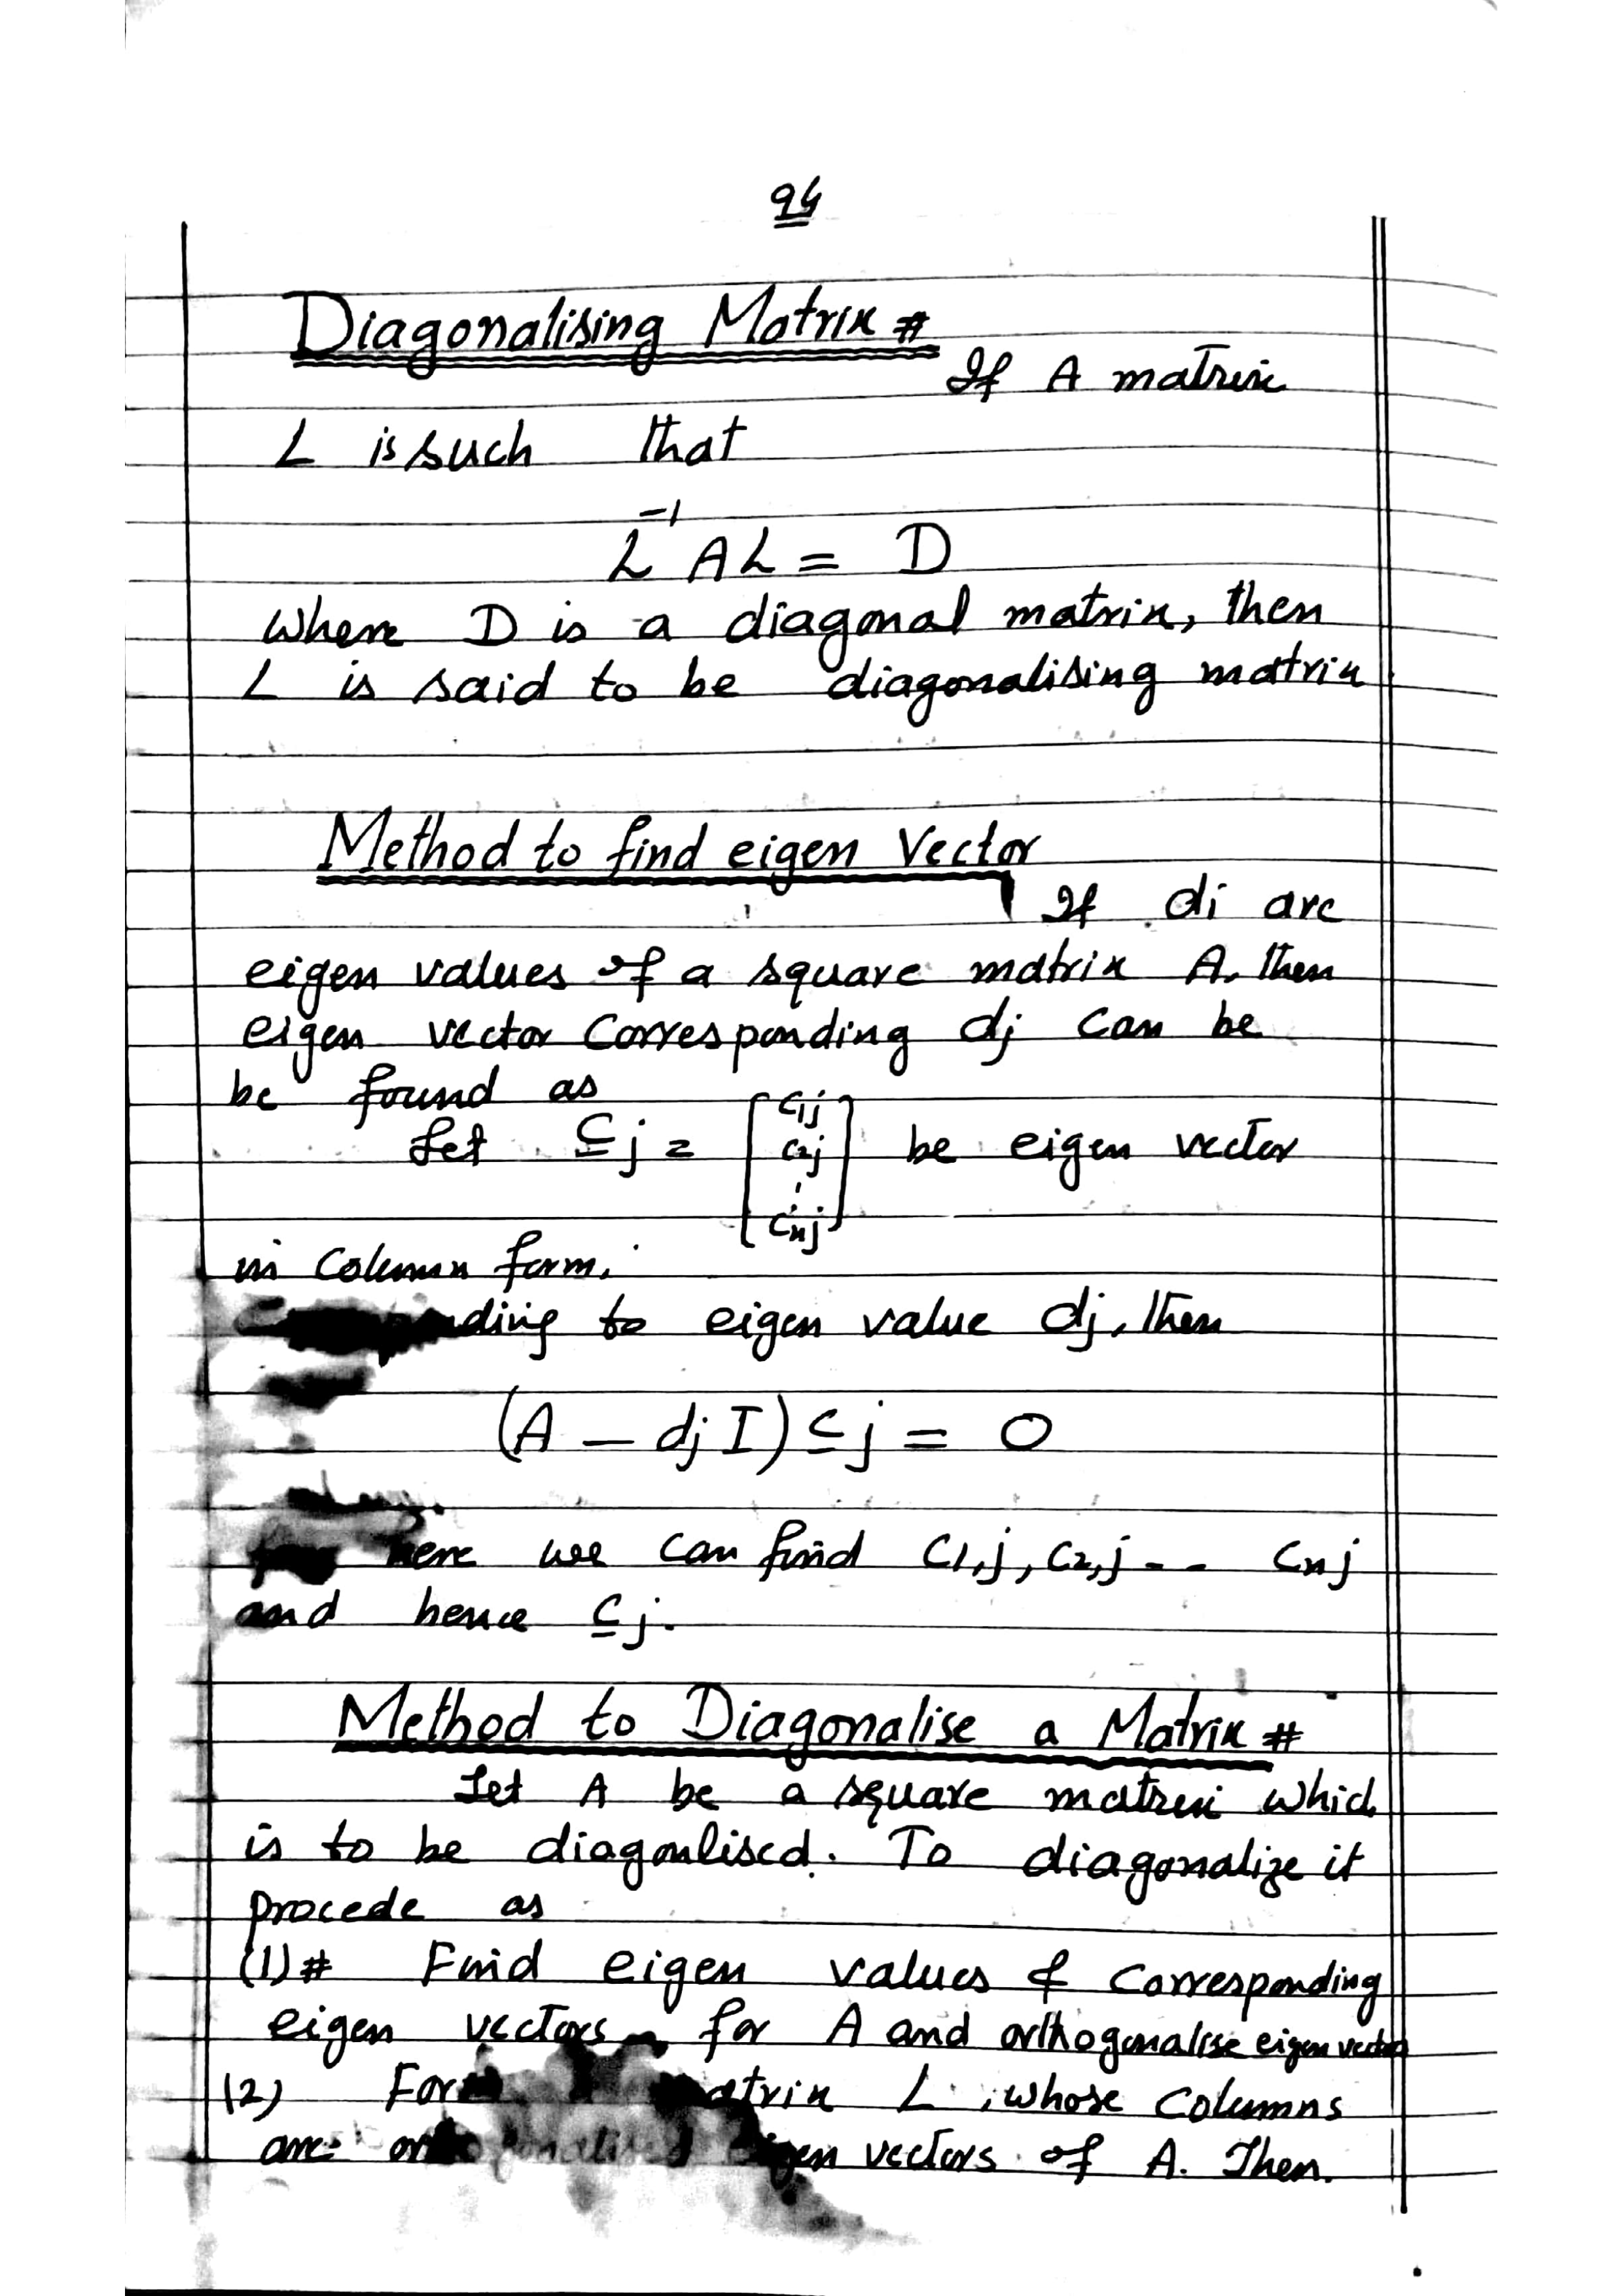 94
Diagonalising Matrix #
If A matrix
L is such that
L⁻¹ A L = D
where D is a diagonal matrix, then
L is said to be diagonalising matrix
Method to find eigen Vector
If di are
eigen values of a square matrix A. then
eigen vector Corresponding dj can be
be found as
Let c̲j = [c1j c2j ⋮ cnj] be eigen vector
in Column form.
to eigen value dj, then
(A - dj I) c̲j = 0
we can find c1,j, c2,j -- cnj
and hence c̲j.
Method to Diagonalise a Matrix #
Let A be a square matrix which
is to be diagonlised. To diagonalize it
procede as
(1)# Find eigen values & Corresponding
eigen vectors for A and orthogonalise eigen vector
(2) L, whose Columns
are vectors of A. Then.